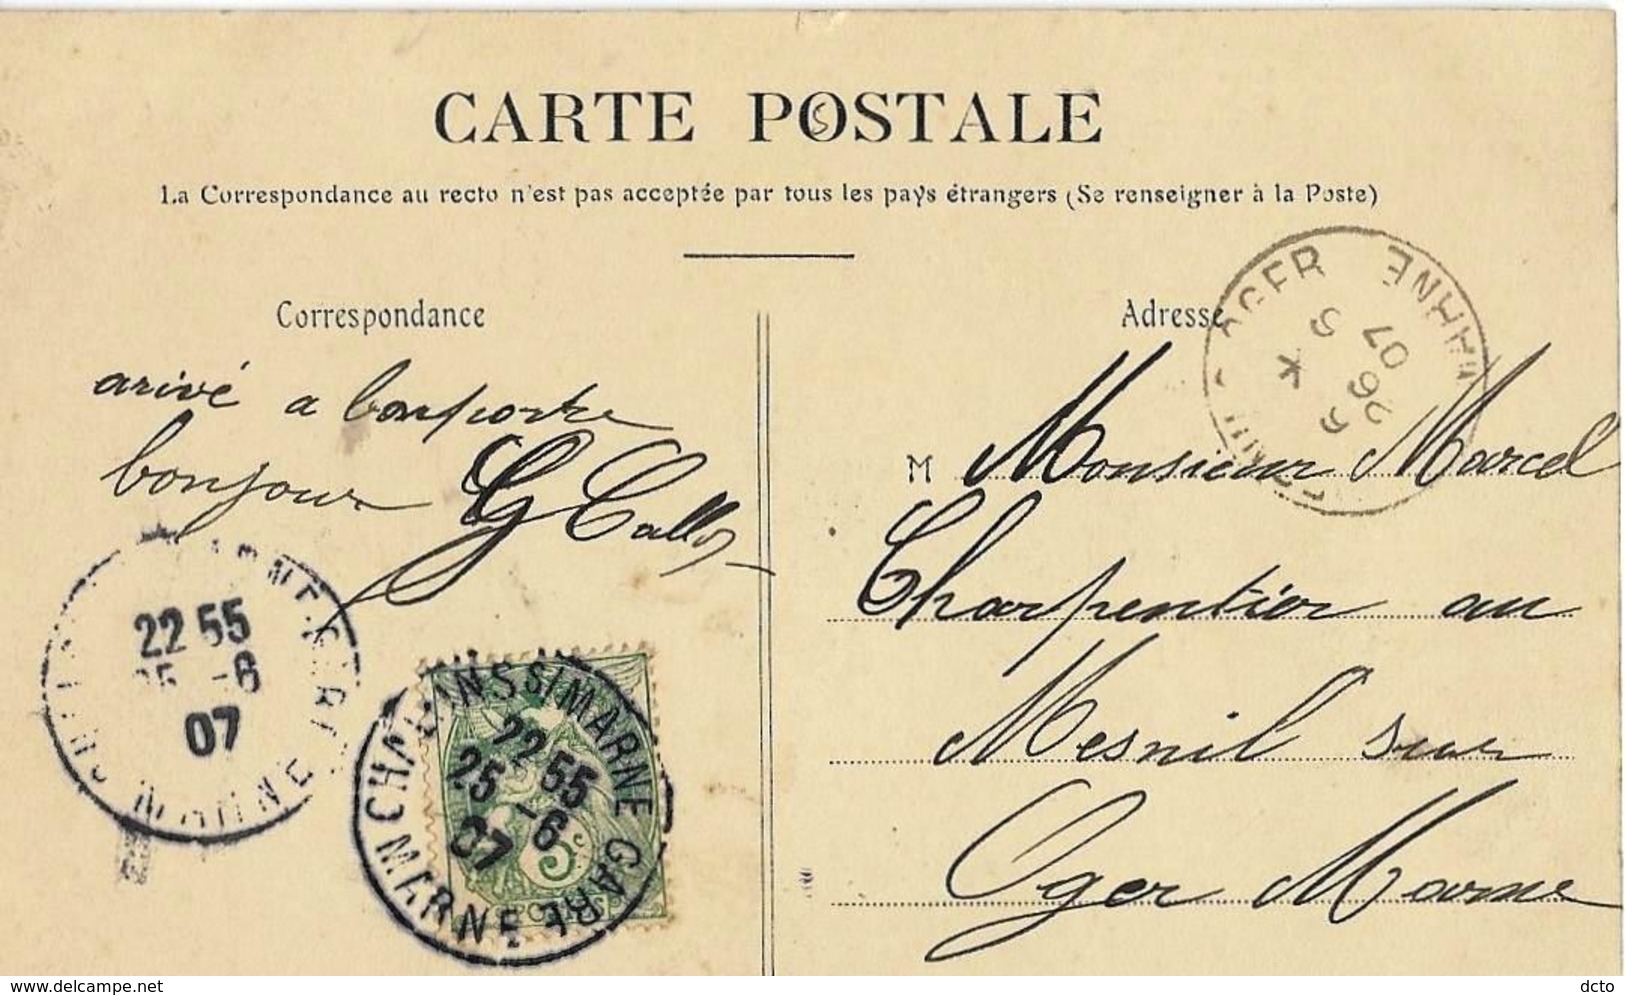 CARTE POSTALE
La Correspondance au recto n'est pas acceptée par tous les pays étrangers (Se renseigner à la Poste)
Correspondance
arivé a bonporte
bonjour G Callot
Adresse
M Monsieur Marcel
Charpentier au
Mesnil sur
Oger Marne
OGER MARNE
5 *
26 07
6
22 55
25 -6
07
MARNE
CHALONS S/ MARNE GARE
MARNE
22 55
25 -6
07
5c
POSTES
delcampe.net
dcto